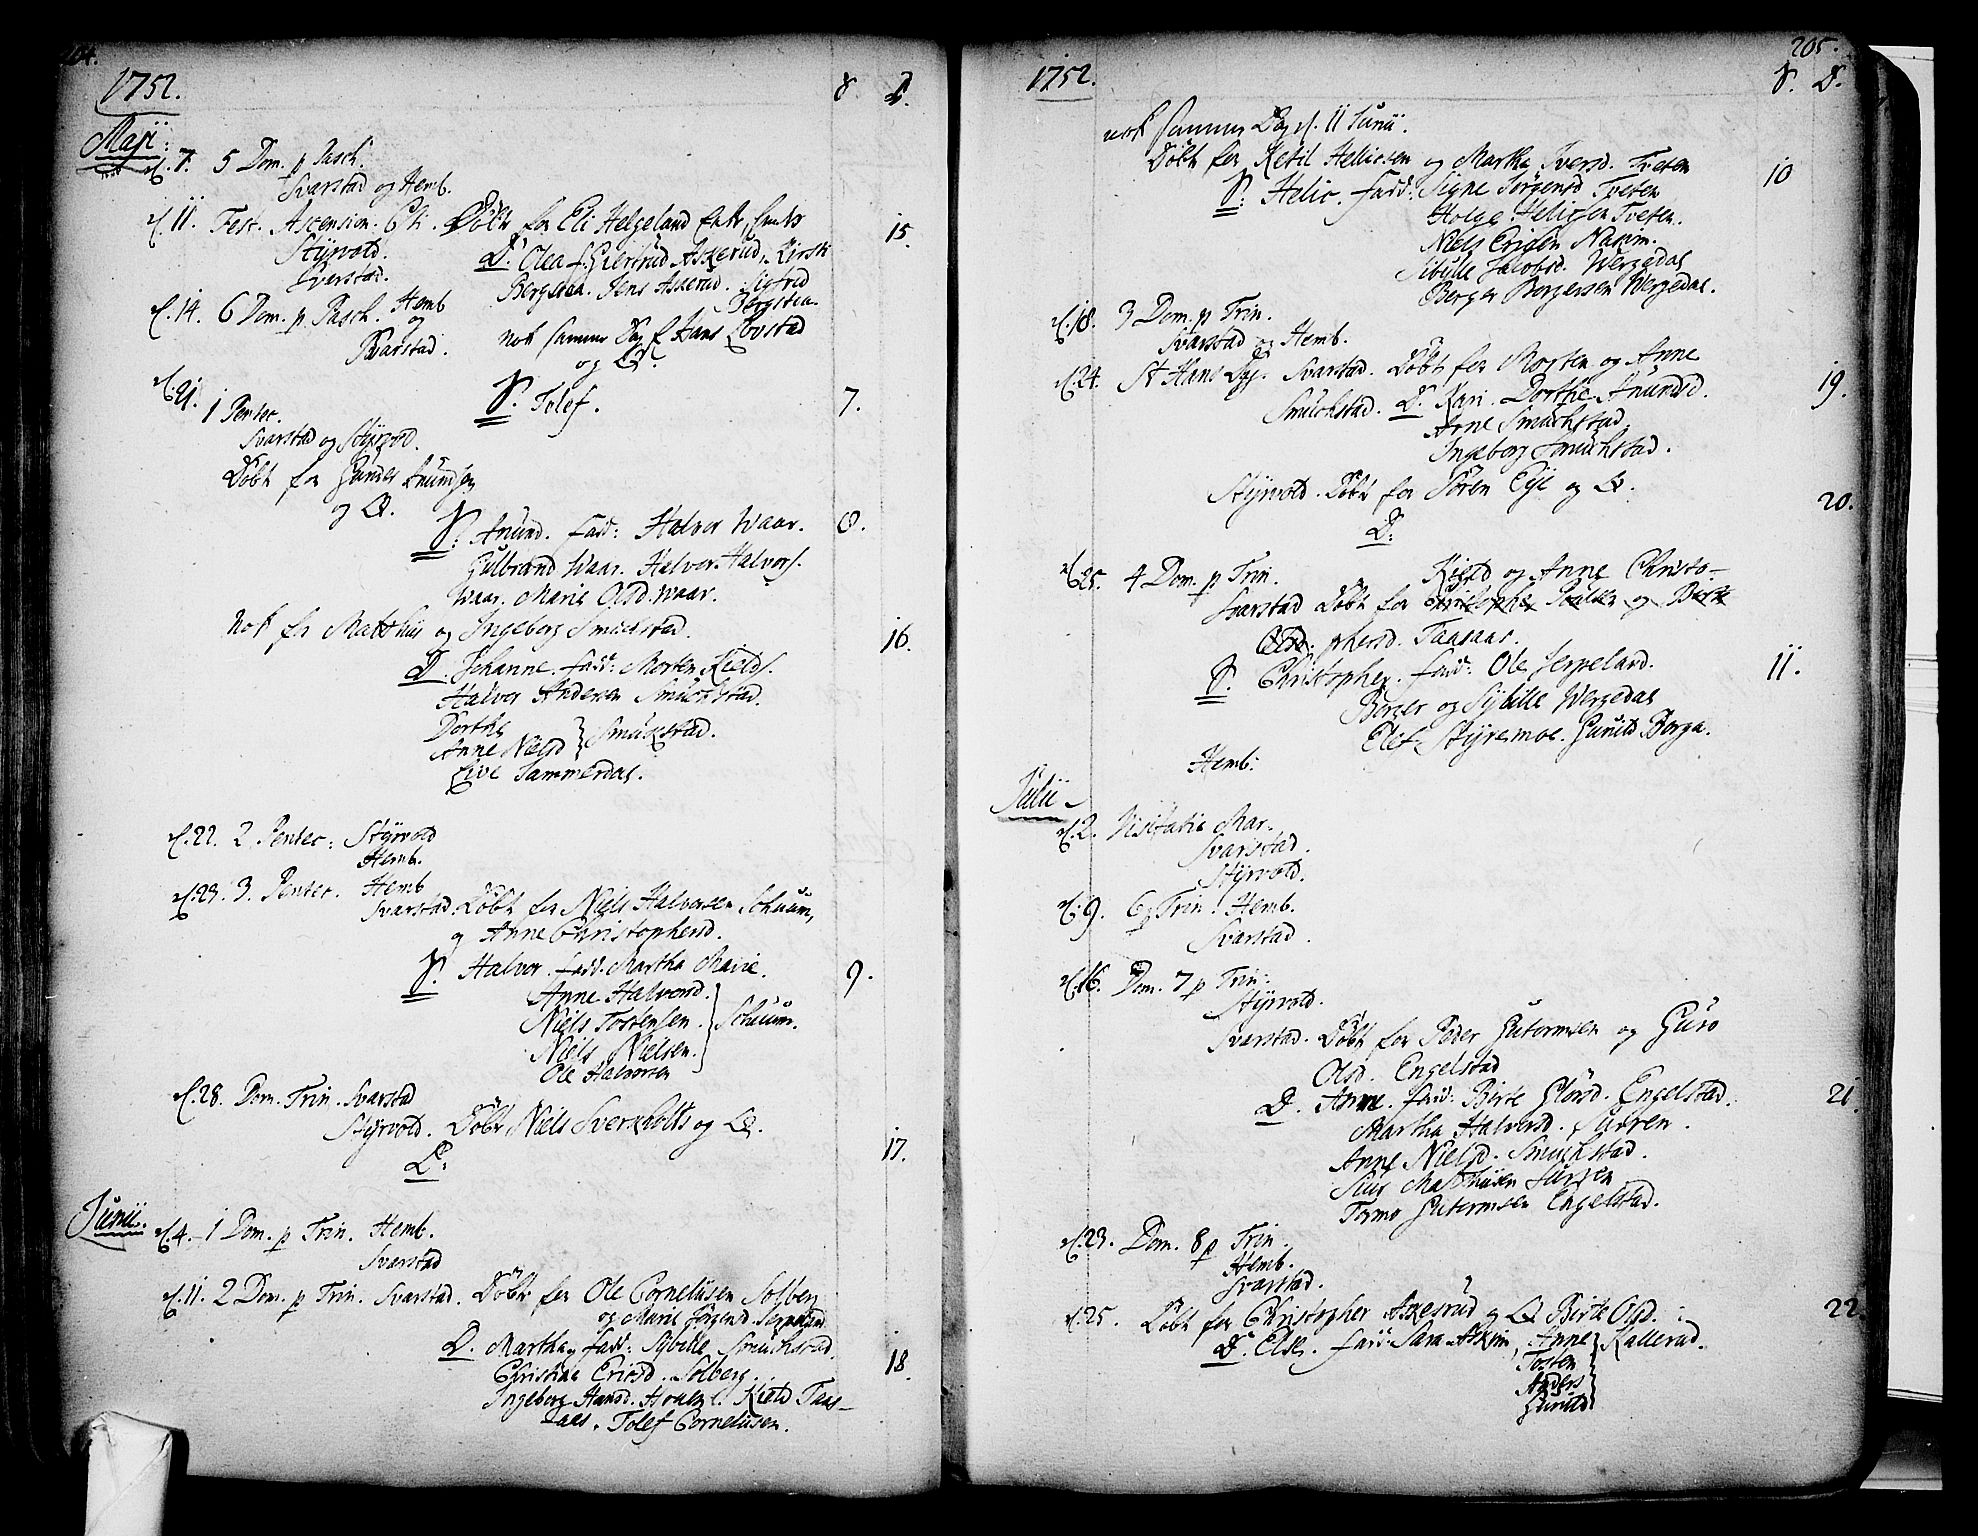 204.
1752. S D.
Maji:
d. 7. 5 Dom. p Pasch.
Svarstad og Hemb.
d. 11. Fest. Ascension. Chr. Döbt for Eli Helgeland
Styrvold. D. Olea f. Giertrud Askerud, Kirsti 15.
Sverstad. Bergstaa. Jens Askerud. Sigfred
Bergstaa.
d. 14. 6 Dom. p. Pasch. Hemb
og
Svarstad.
nok samme Dag f Hans Lövstad
og Q.
S. Tolef. 7.
d. 21. 1 Pentec.
Svarstad og Styrvold.
Döbt for Gunder Anundsen
og Q.
S: Anund. fadd: Halvor Waar. 8.
Gulbrand Waar. Halvor Halvors.
Waar. Marie Olsd. Waar.
Nok for Matthis og Ingeborg Smuchstad. 16.
D. Johanne. fadd: Morten Kields.
Halvor Andersen Smuchstad.
Dorthe
Anne Nielsd } Smuchstad.
Live Sammerdal.
d. 22. 2 Pentec: Styrvold
Hemb.
d. 23. 3. Pentec. Hemb
Svarstad. Döbt for Niels Halvorsen Schuum,
og Anne Christophersd.
S. Halvor. fadd. Martha Marie. 9.
Anne Halvorsd.
Niels Tostensen. } Schuum.
Niels Nielsen.
Ole Halvorsen
d. 28. Dom. Trin. Svarstad
Styrvold. Döbt Niels Sverkholts og Q.
D: 17.
Junii.
d. 4. 1 Dom. p Trin. Hemb.
Svarstad
d. 11. 2 Dom. p Trin. Svarstad. Döbt for Ole Cornelusen Solberg
og Marie Jörgensd. Serpeland
D. Martha, fadd: Sybille Smuchstad. 18.
Christine Ericsd. Solberg.
Ingeborg Hansd. Kield Taas-
aas. Tolef Cornelusen.
205.
1752. S. D.
nok samme Dag d. 11 Junii.
Döbt for Ketil Helliesen og Martha Iversd. Tveten 10
S: Helie. fadd: Signe Jörgensd Tveten
Holge Heliesen Tveten.
Niels Ericsen
Sibylle Jacobsd. Wergedal
Berger Borgersen Wergedal.
d. 18. 3 Dom. p Trin.
Svarstad og Hemb.
d. 24. St Hans Dag. Svarstad. Döbt for Morten og Anne
Smuchstad. D. Kari. Dorthe Anundsd. 19.
Anne Smuchstad
Ingeborg Smuchstad.
Styrvold. Döbt for Sören Eye og Q.
D: 20.
d. 25. 4 Dom. p Trin. Kield og Anne Christo-
Svarstad Döbt for Christopher og Berte
Olsd: phersd. Taasaas.
S. Christopher. fadd: Ole Serpeland. 11.
Borger og Sybille Wergedal
Elef Styremoe. Gunild Borga.
Hemb:
Julii
d. 2. Visitatio Mar.
Svarstad.
Styrvold.
d. 9. 6 p Trin. Hemb.
Svarstad.
d. 16. Dom. 7 p Trin:
Styrvold.
Svarstad. Döbt for Peder Gutormsen og Guro
Olsd. Engelstad
D. Anne. fadd: Birte Glörsd. Engelstad. 21.
Martha Halvorsd.
Anne Nielsd. Smuchstad.
Siur Matthisen
Tormo Gutormsen Engelstad.
d. 23. Dom. 8 p Trin.
Hemb.
Svarstad.
d. 25. Döbt for Christopher Askesrud og Q Birte Olsd. 22
D. Else. fadd: Sara Askim, Anne
Tosten } Kallerud.
Anders
Gunild